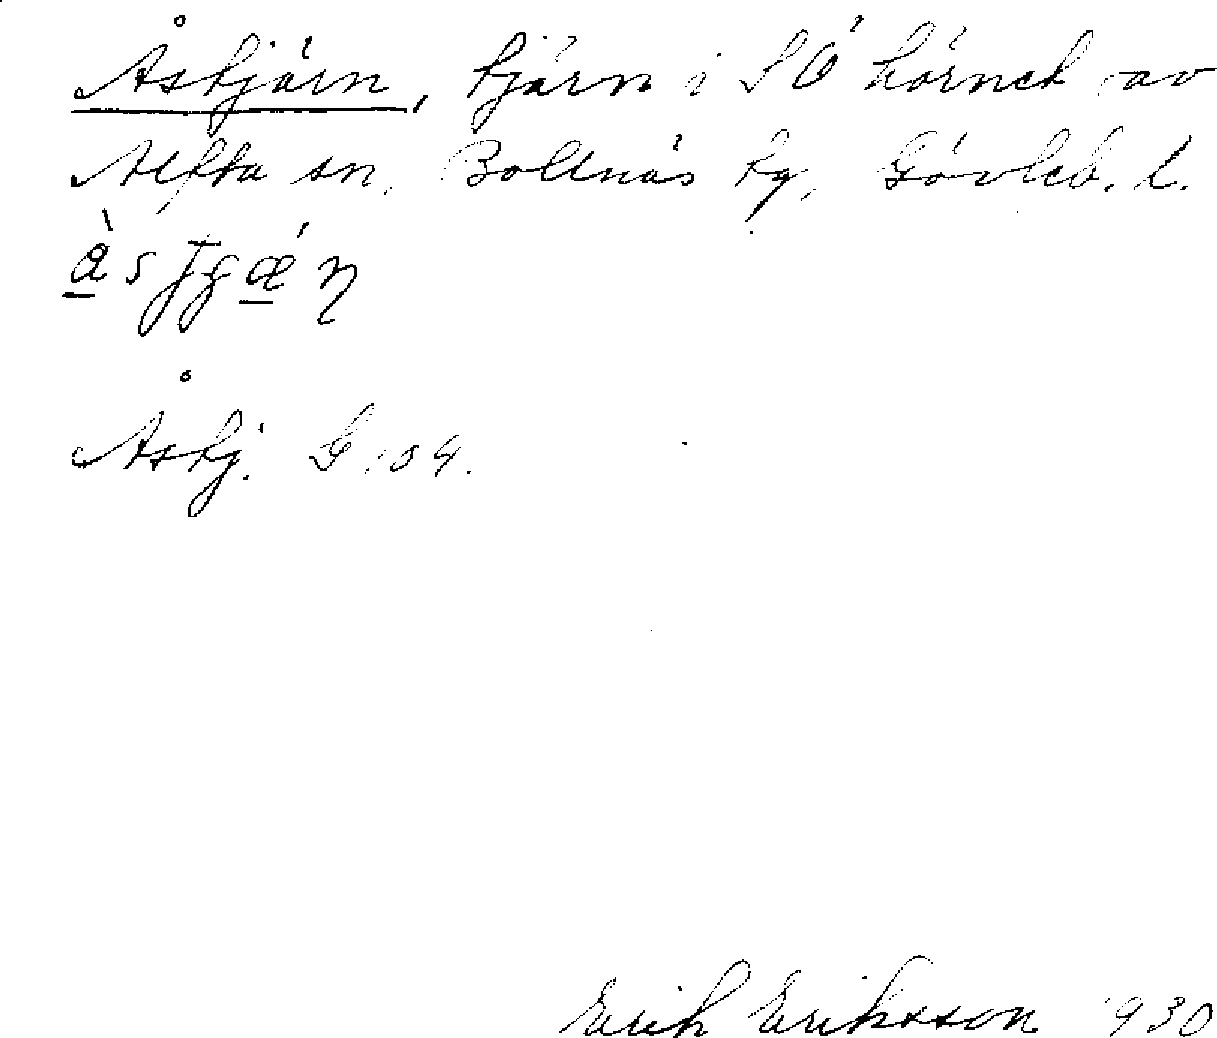 Åstjärn, tjärn i SÖ hörnet av
Alfta sn, Bollnäs tg, Gävleb. l.
Åstj. G 104.
Erik Eriksson 1930